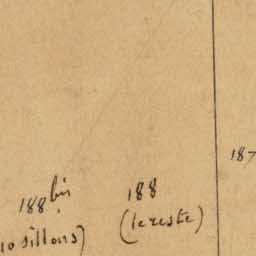 187
188 bis
188
(le reste)
10 sillons)